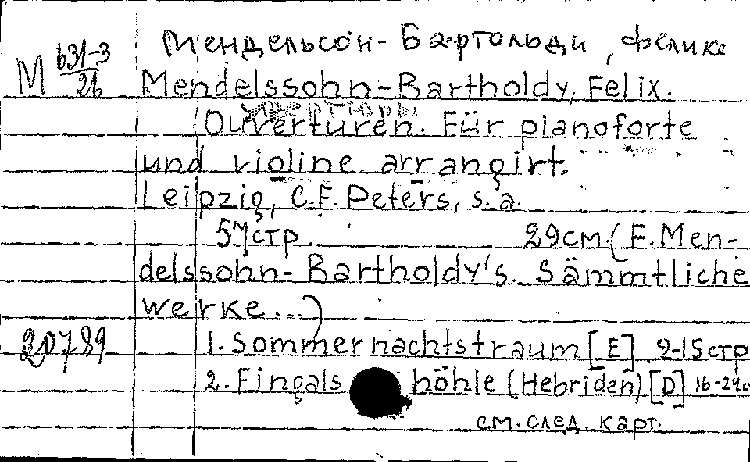 Мендельсон-Бартольди, Феликс
M 631-3/26
Mendelssohn-Bartholdy, Felix.
Ouvertüren. Für pianoforte
und violine arrangirt.
Leipzig, C.F. Peters, s.a.
57стр. 29см (F.Men-
delssohn-Bartholdy's. Sämmtliche
werke...)
20789
1. Sommernachtstraum [E] 2-15стр
2. Fingals höhle (Hebriden) [D] 16-24с
см. след. карт.